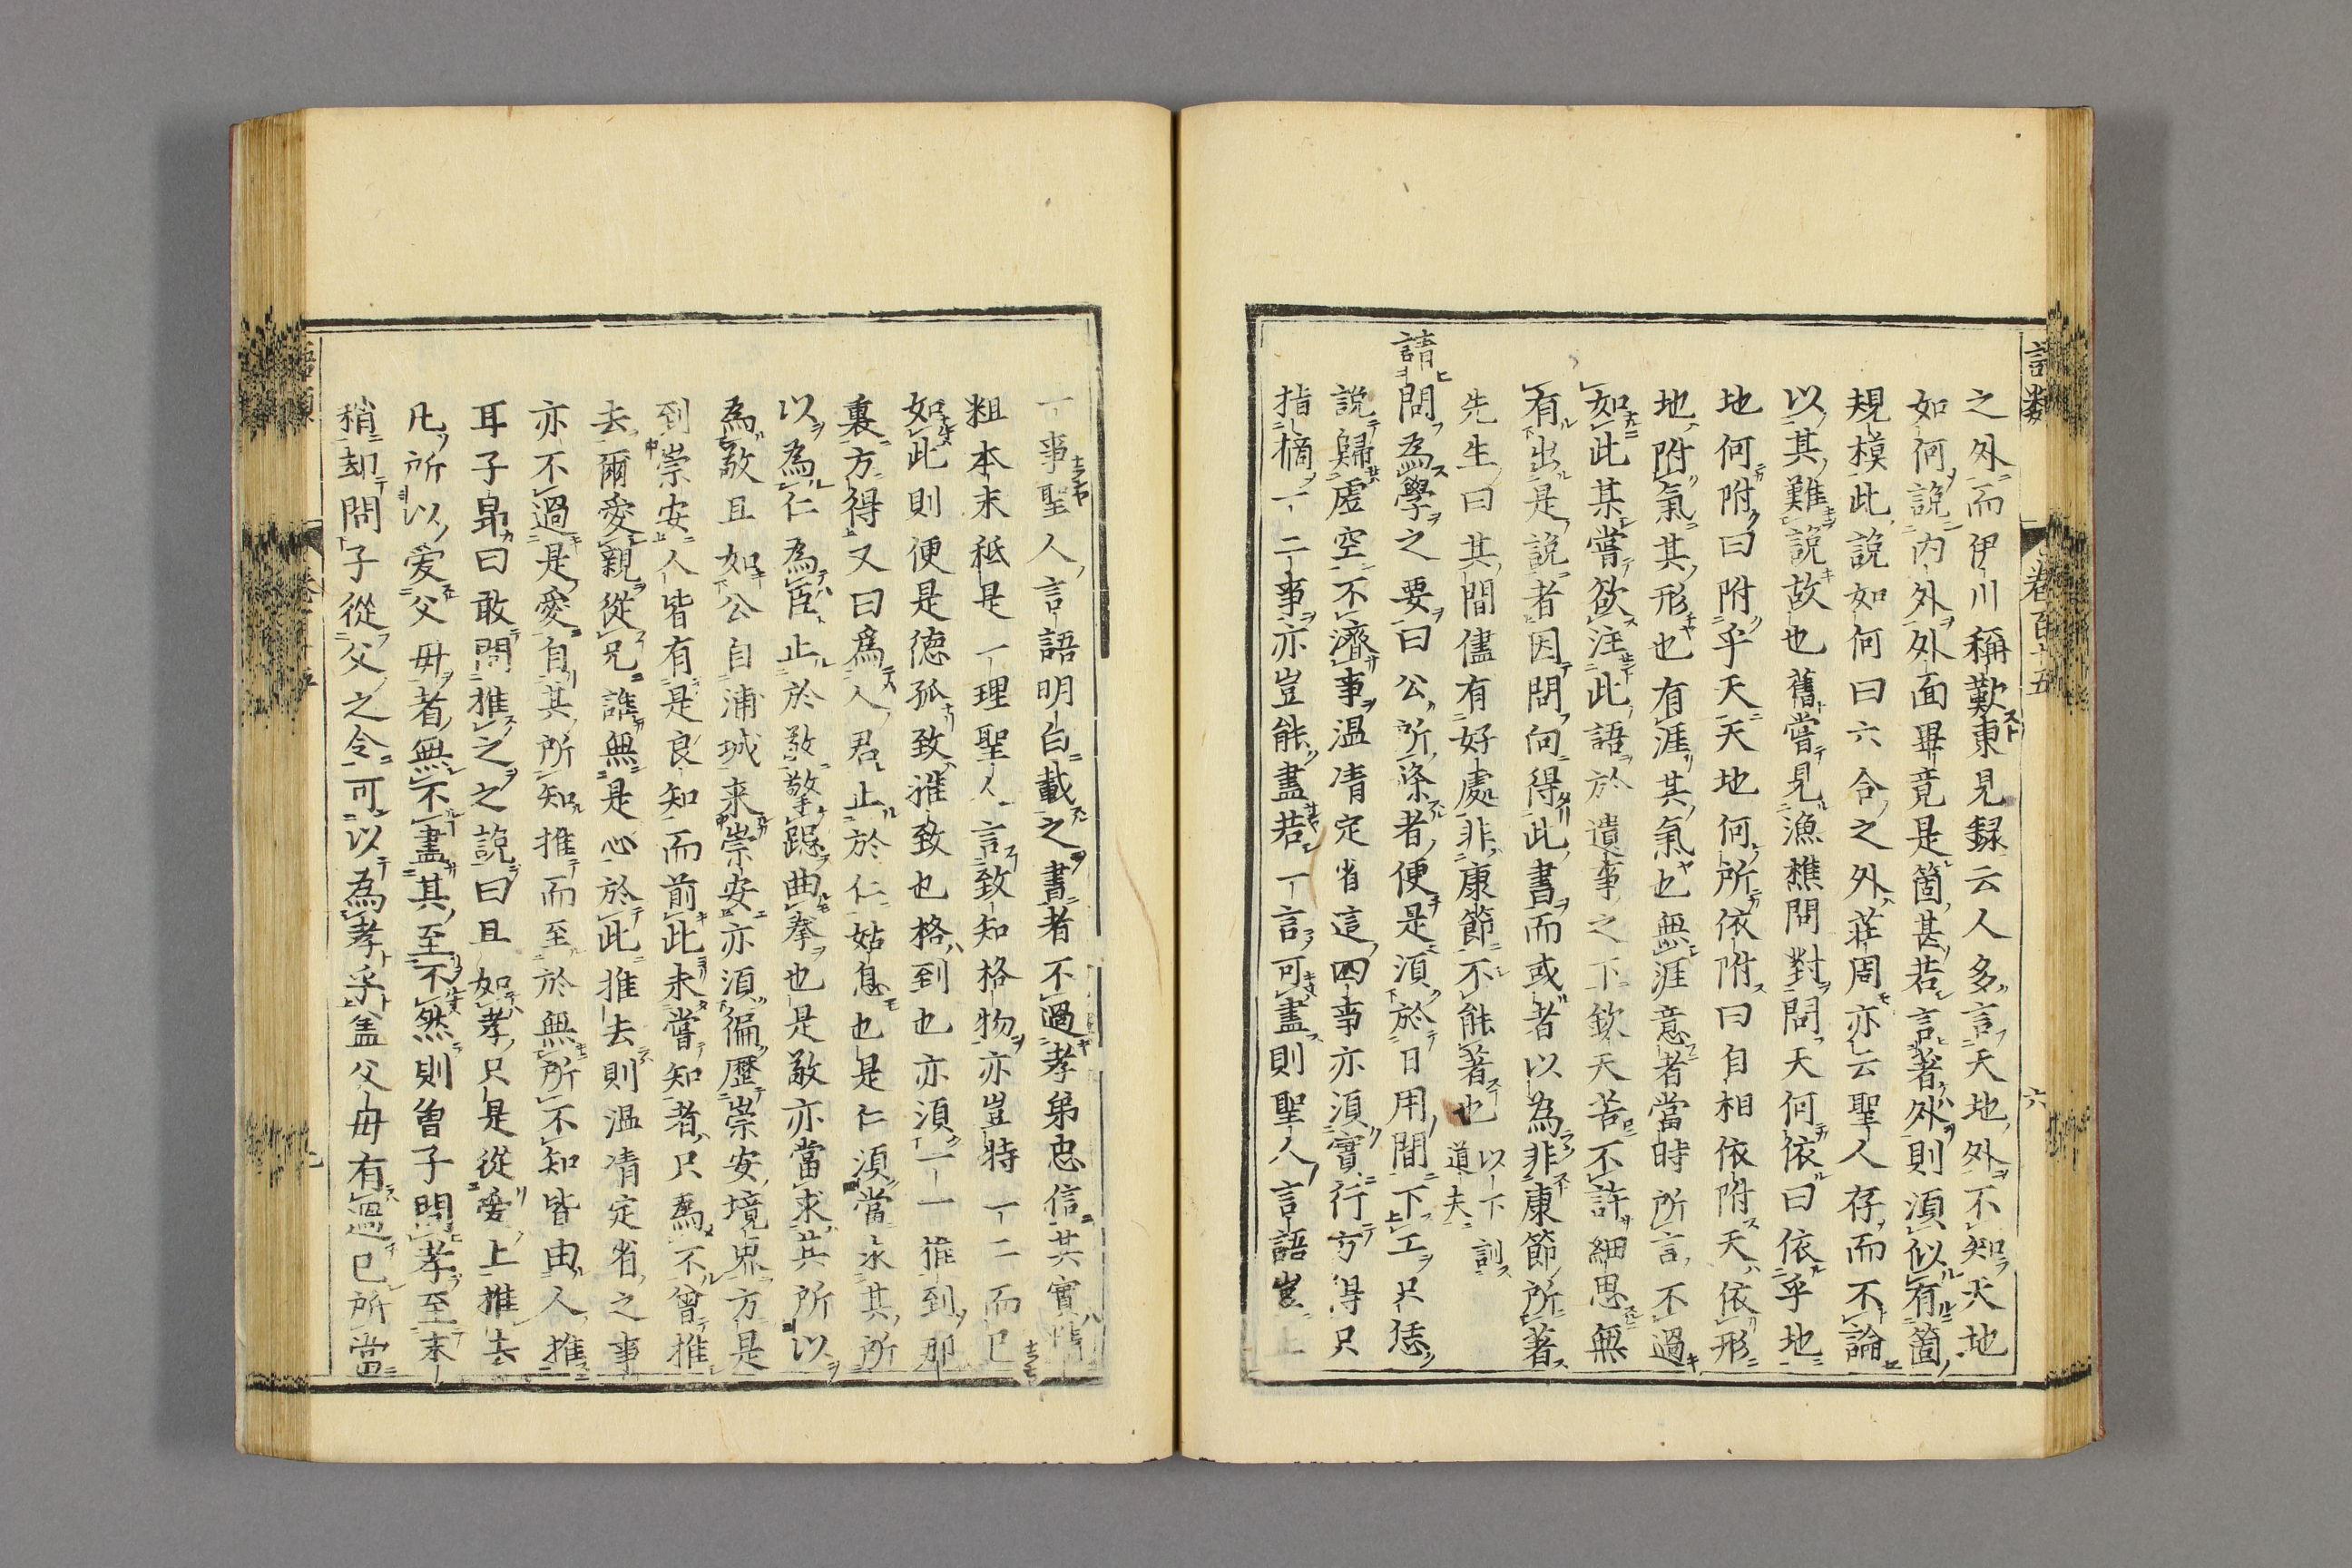 語類 卷百十五 六
之外而伊川稱歎東見録云人多言天地外不知天地
如何說内外外面畢竟是箇甚若言著外則須似有箇
規模此說如何曰六合之外荘周亦云聖人存而不論
以其難說故也舊嘗見漁樵問對問天何依曰依乎地
地何附曰附乎天天地何所依附曰自相依附天依形
地附氣其形也有涯其氣也無涯意者當時所言不過
如此某嘗欲注此語於遺事之下欽夫苦不許細思無
有出是說者因問向得此書而或者以為非康節所著
先生曰其間儘有好處非康節不能著也 以下訓道夫
請問為學之要曰公所條者便是須於日用間下工只恁
說歸虗空不濟事温凊定省這四事亦須實行方得只
指摘一二事亦豈能盡若一言可盡則聖人言語豈止
一事聖人言語明白載之書者不過孝弟忠信其實精
粗本末秪是一理聖人言致知格物亦豈特一二而已
如此則便是德孤致推致也格到也亦須一一推到那
裏方得又曰為人君止於仁姑息也是仁須當求其所
以為仁為臣止於敬擎跽曲拳也是敬亦當求其所以
為敬且如公自浦城来崇安亦須徧歷崇安境界方是
到崇安人皆有是良知而前此未嘗知者只為不曾推
去爾愛親從兄誰無是心於此推去則温凊定省之事
亦不過是愛自其所知推而至於無所不知皆由人推
耳子昂曰敢問推之之說曰且如孝只是從愛上推去
凡所以爱父母者無不盡其至不然則曾子問孝至末
稍却問子從父之令可以為孝乎盖父母有過己所當